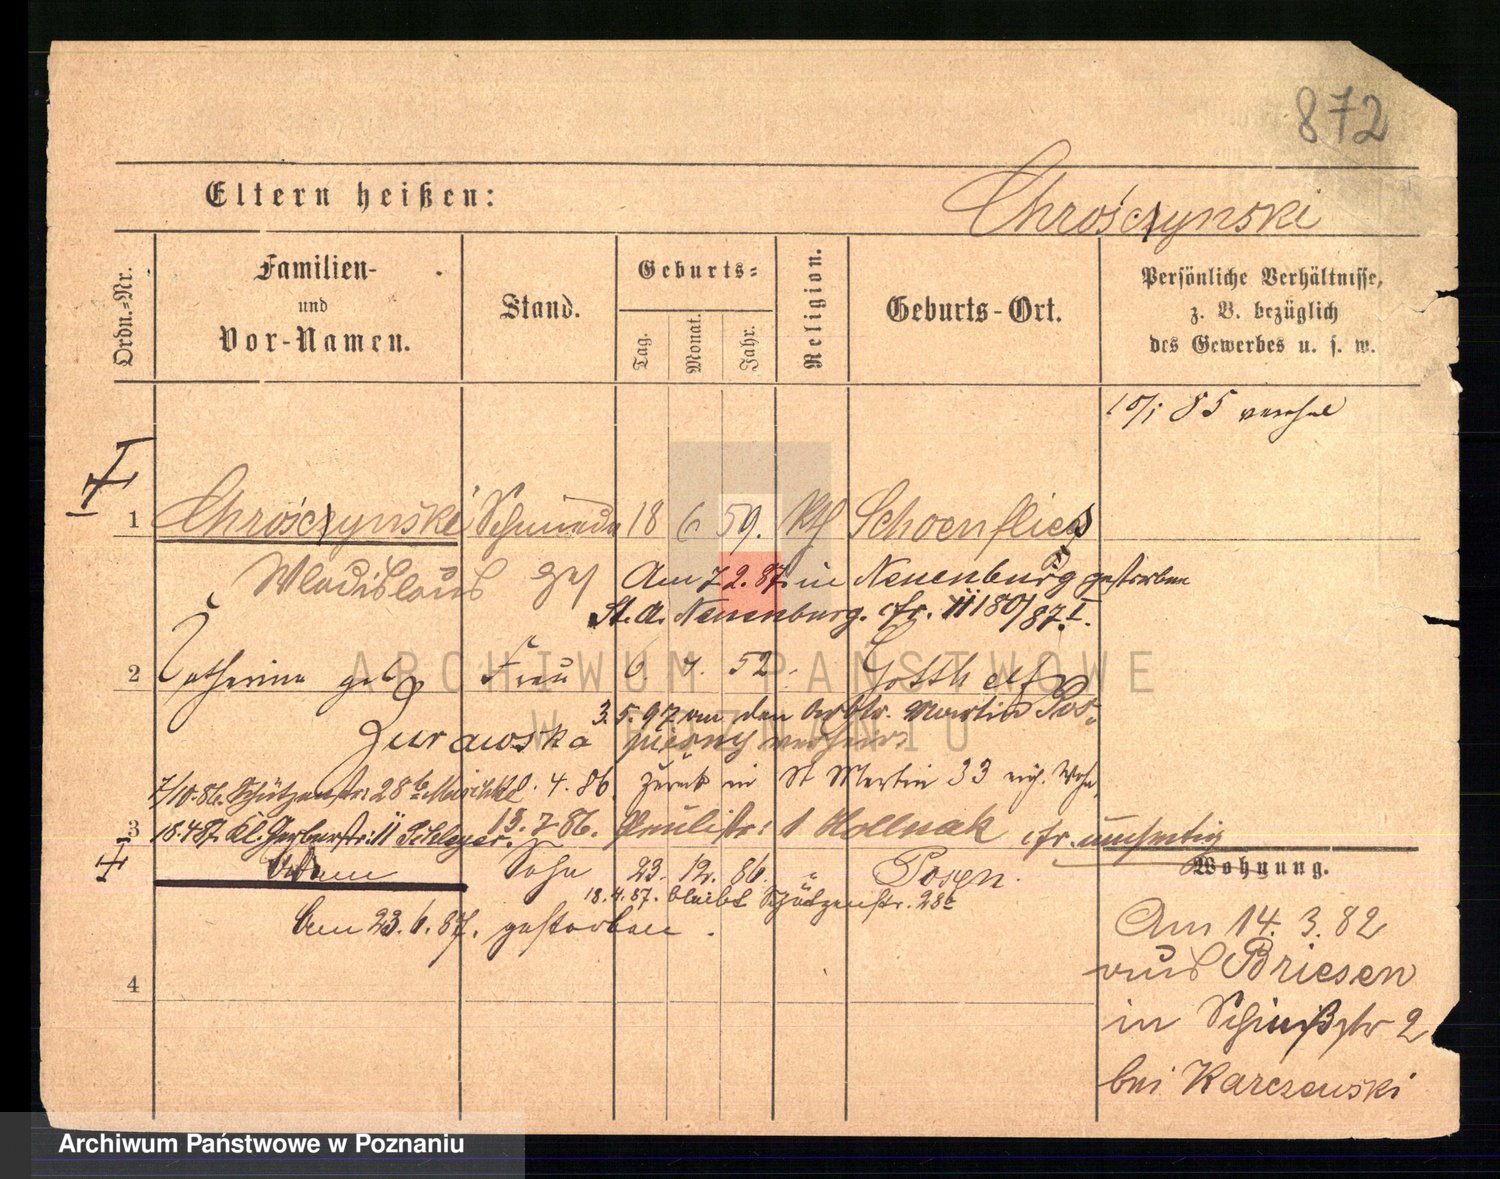 872
Eltern heißen:
Chrośczynski
Ordn.-Nr.
Familien-
und
Vor-Namen.
Stand.
Geburts-
Tag.
Monat.
Jahr.
Religion.
Geburts-Ort.
Persönliche Verhältnisse,
z. B. bezüglich
des Gewerbes u. s. w.
10/1 85
1 Chrośczynski Schmied 18 6 59. Kth Schoenfliess
Wladislaus Am 7.2.87. in Neuenburg gestorben
St. A. Neuenburg. cfr. II 180/87. I.
2 Catharina geb Frau 6. 4. 52 Gotthelf
3.5.97 an den Arbtr. Martin Pos-
Zurawska
7/10.86. Schützenstr: 28b 4. 86. zurück in St Martin 33
18.4 87. Kl. Gerberstr: 11 13. 7 86. Paulistr: 1 Kollnak cfr. umseitig
3 Adam Sohn 23. 12. 86. " Posen.
18.4.87. bleibt Schützenstr. 28b
Am 23.6.87. gestorben.
4
Wohnung.
Am 14. 3. 82
aus Briesen
in 2
bei Karczewski
ARCHIWUM PAŃSTWOWE
W POZNANIU
Archiwum Państwowe w Poznaniu